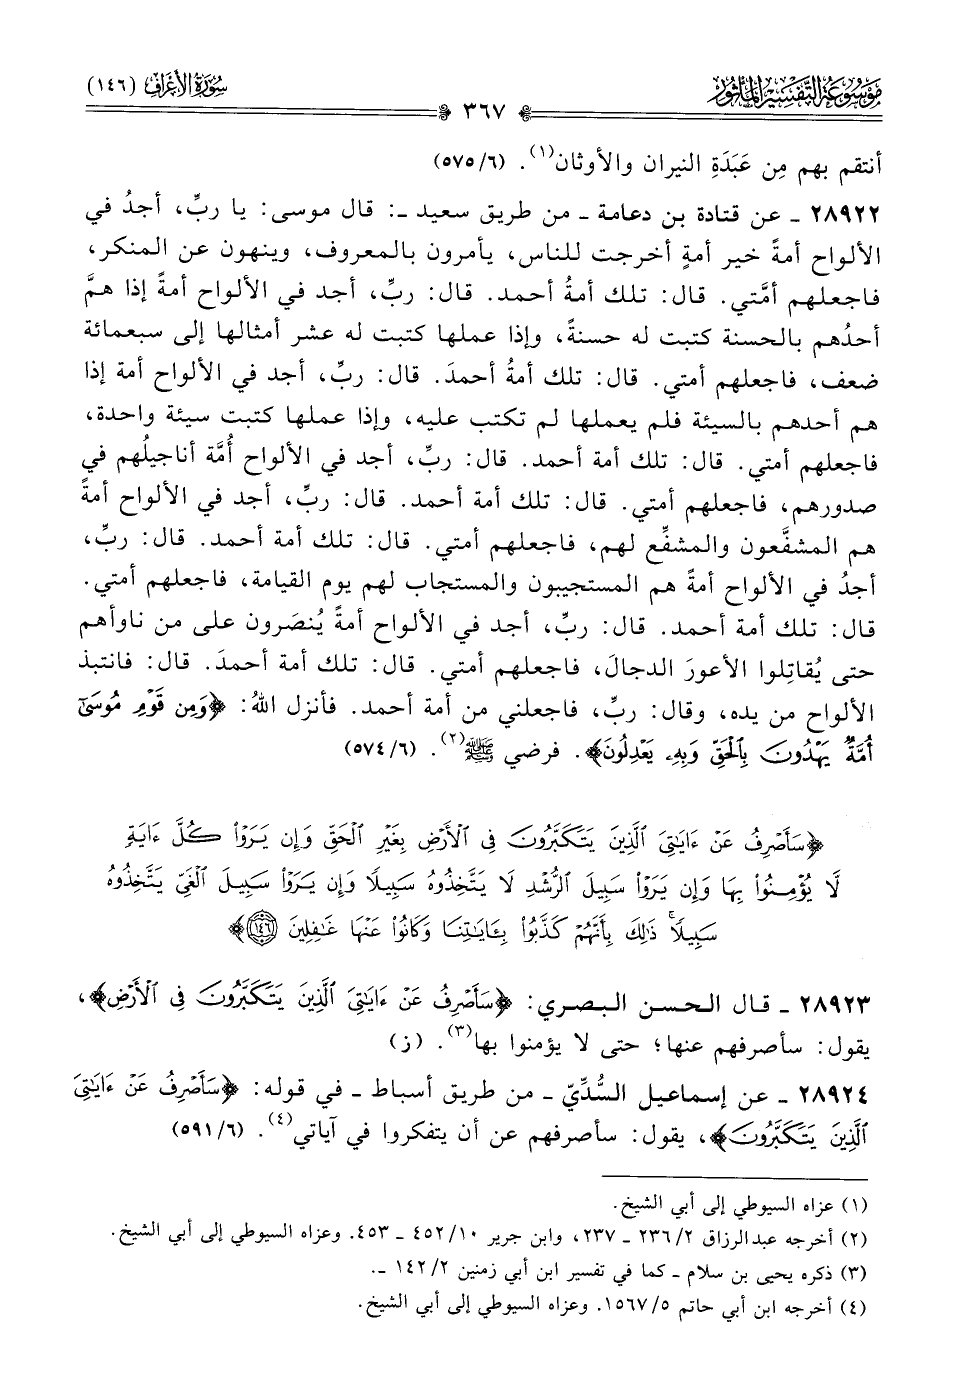 موسوعة التفسير المأثور
سورة الأعراف (١٤٦)
٣٦٧
أنتقم بهم مِن عَبَدَةِ النيران والأوثان(١). (٥٧٥/٦)
٢٨٩٢٢ ـ عن قتادة بن دعامة ـ من طريق سعيد ـ: قال موسى: يا ربِّ، أجدُ في
الألواح أمةً خير أمةٍ أخرجت للناس، يأمرون بالمعروف، وينهون عن المنكر،
فاجعلهم أمَّتي. قال: تلك أمةُ أحمد. قال: ربِّ، أجد في الألواح أمةً إذا همَّ
أحدُهم بالحسنة كتبت له حسنةً، وإذا عملها كتبت له عشر أمثالها إلى سبعمائة
ضعف، فاجعلهم أمتي. قال: تلك أمةُ أحمدَ. قال: ربِّ، أجد في الألواح أمة إذا
هم أحدهم بالسيئة فلم يعملها لم تكتب عليه، وإذا عملها كتبت سيئة واحدة،
فاجعلهم أمتي. قال: تلك أمة أحمد. قال: ربِّ، أجد في الألواح أُمَّة أناجيلُهم في
صدورهم، فاجعلهم أمتي. قال: تلك أمة أحمد. قال: ربِّ، أجد في الألواح أمةً
هم المشفَّعون والمشفِّع لهم، فاجعلهم أمتي. قال: تلك أمة أحمد. قال: ربِّ،
أجدُ في الألواح أمةً هم المستجيبون والمستجاب لهم يوم القيامة، فاجعلهم أمتي.
قال: تلك أمة أحمد. قال: ربِّ، أجد في الألواح أمةً يُنصَرون على من ناوأهم
حتى يُقاتِلوا الأعورَ الدجالَ، فاجعلهم أمتي. قال: تلك أمة أحمدَ. قال: فانتبذ
الألواح من يده، وقال: ربِّ، فاجعلني من أمة أحمد. فأنزل اللهُ: ﴿وَمِن قَوْمِ مُوسَىٰٓ
أُمَّةٌ يَهْدُونَ بِٱلْحَقِّ وَبِهِۦ يَعْدِلُونَ﴾. فرضي ﷺ(٢). (٥٧٤/٦)
﴿سَأَصْرِفُ عَنْ ءَايَٰتِىَ ٱلَّذِينَ يَتَكَبَّرُونَ فِى ٱلْأَرْضِ بِغَيْرِ ٱلْحَقِّ وَإِن يَرَوْا۟ كُلَّ ءَايَةٍ
لَّا يُؤْمِنُوا۟ بِهَا وَإِن يَرَوْا۟ سَبِيلَ ٱلرُّشْدِ لَا يَتَّخِذُوهُ سَبِيلًا وَإِن يَرَوْا۟ سَبِيلَ ٱلْغَىِّ يَتَّخِذُوهُ
سَبِيلًا ۚ ذَٰلِكَ بِأَنَّهُمْ كَذَّبُوا۟ بِـَٔايَٰتِنَا وَكَانُوا۟ عَنْهَا غَٰفِلِينَ ١٤٦﴾
٢٨٩٢٣ ـ قال الحسن البصري: ﴿سَأَصْرِفُ عَنْ ءَايَٰتِىَ ٱلَّذِينَ يَتَكَبَّرُونَ فِى ٱلْأَرْضِ﴾،
يقول: سأصرفهم عنها؛ حتى لا يؤمنوا بها(٣). (ز)
٢٨٩٢٤ ـ عن إسماعيل السُّدِّيّ ـ من طريق أسباط ـ في قوله: ﴿سَأَصْرِفُ عَنْ ءَايَٰتِىَ
ٱلَّذِينَ يَتَكَبَّرُونَ﴾، يقول: سأصرفهم عن أن يتفكروا في آياتي(٤). (٥٩١/٦)
(١) عزاه السيوطي إلى أبي الشيخ.
(٢) أخرجه عبدالرزاق ٢٣٦/٢ ـ ٢٣٧، وابن جرير ٤٥٢/١٠ ـ ٤٥٣. وعزاه السيوطي إلى أبي الشيخ.
(٣) ذكره يحيى بن سلام ـ كما في تفسير ابن أبي زمنين ١٤٢/٢ ـ.
(٤) أخرجه ابن أبي حاتم ١٥٦٧/٥. وعزاه السيوطي إلى أبي الشيخ.